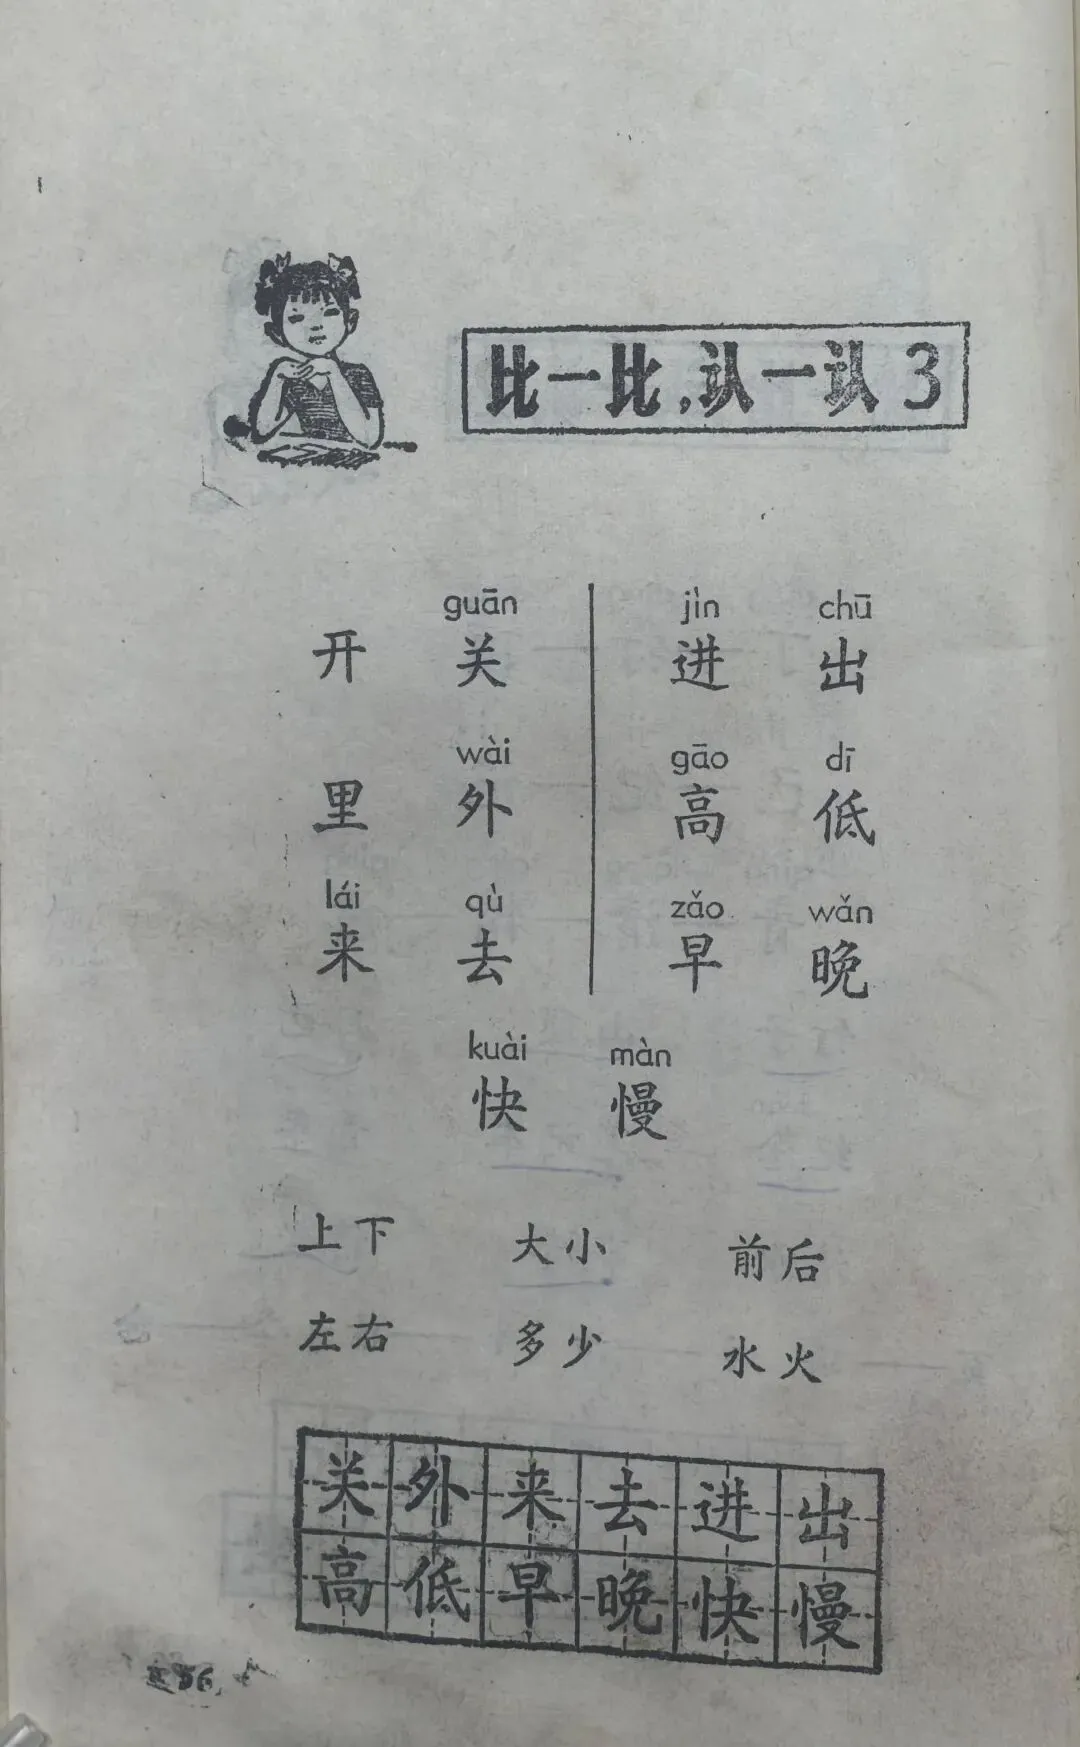 比一比，认一认 3
guān jìn chū
开 关 进 出
wài gāo dī
里 外 高 低
lái qù zǎo wǎn
来 去 早 晚
kuài màn
快 慢
上下 大小 前后
左右 多少 水火
关 外 来 去 进 出
高 低 早 晚 快 慢